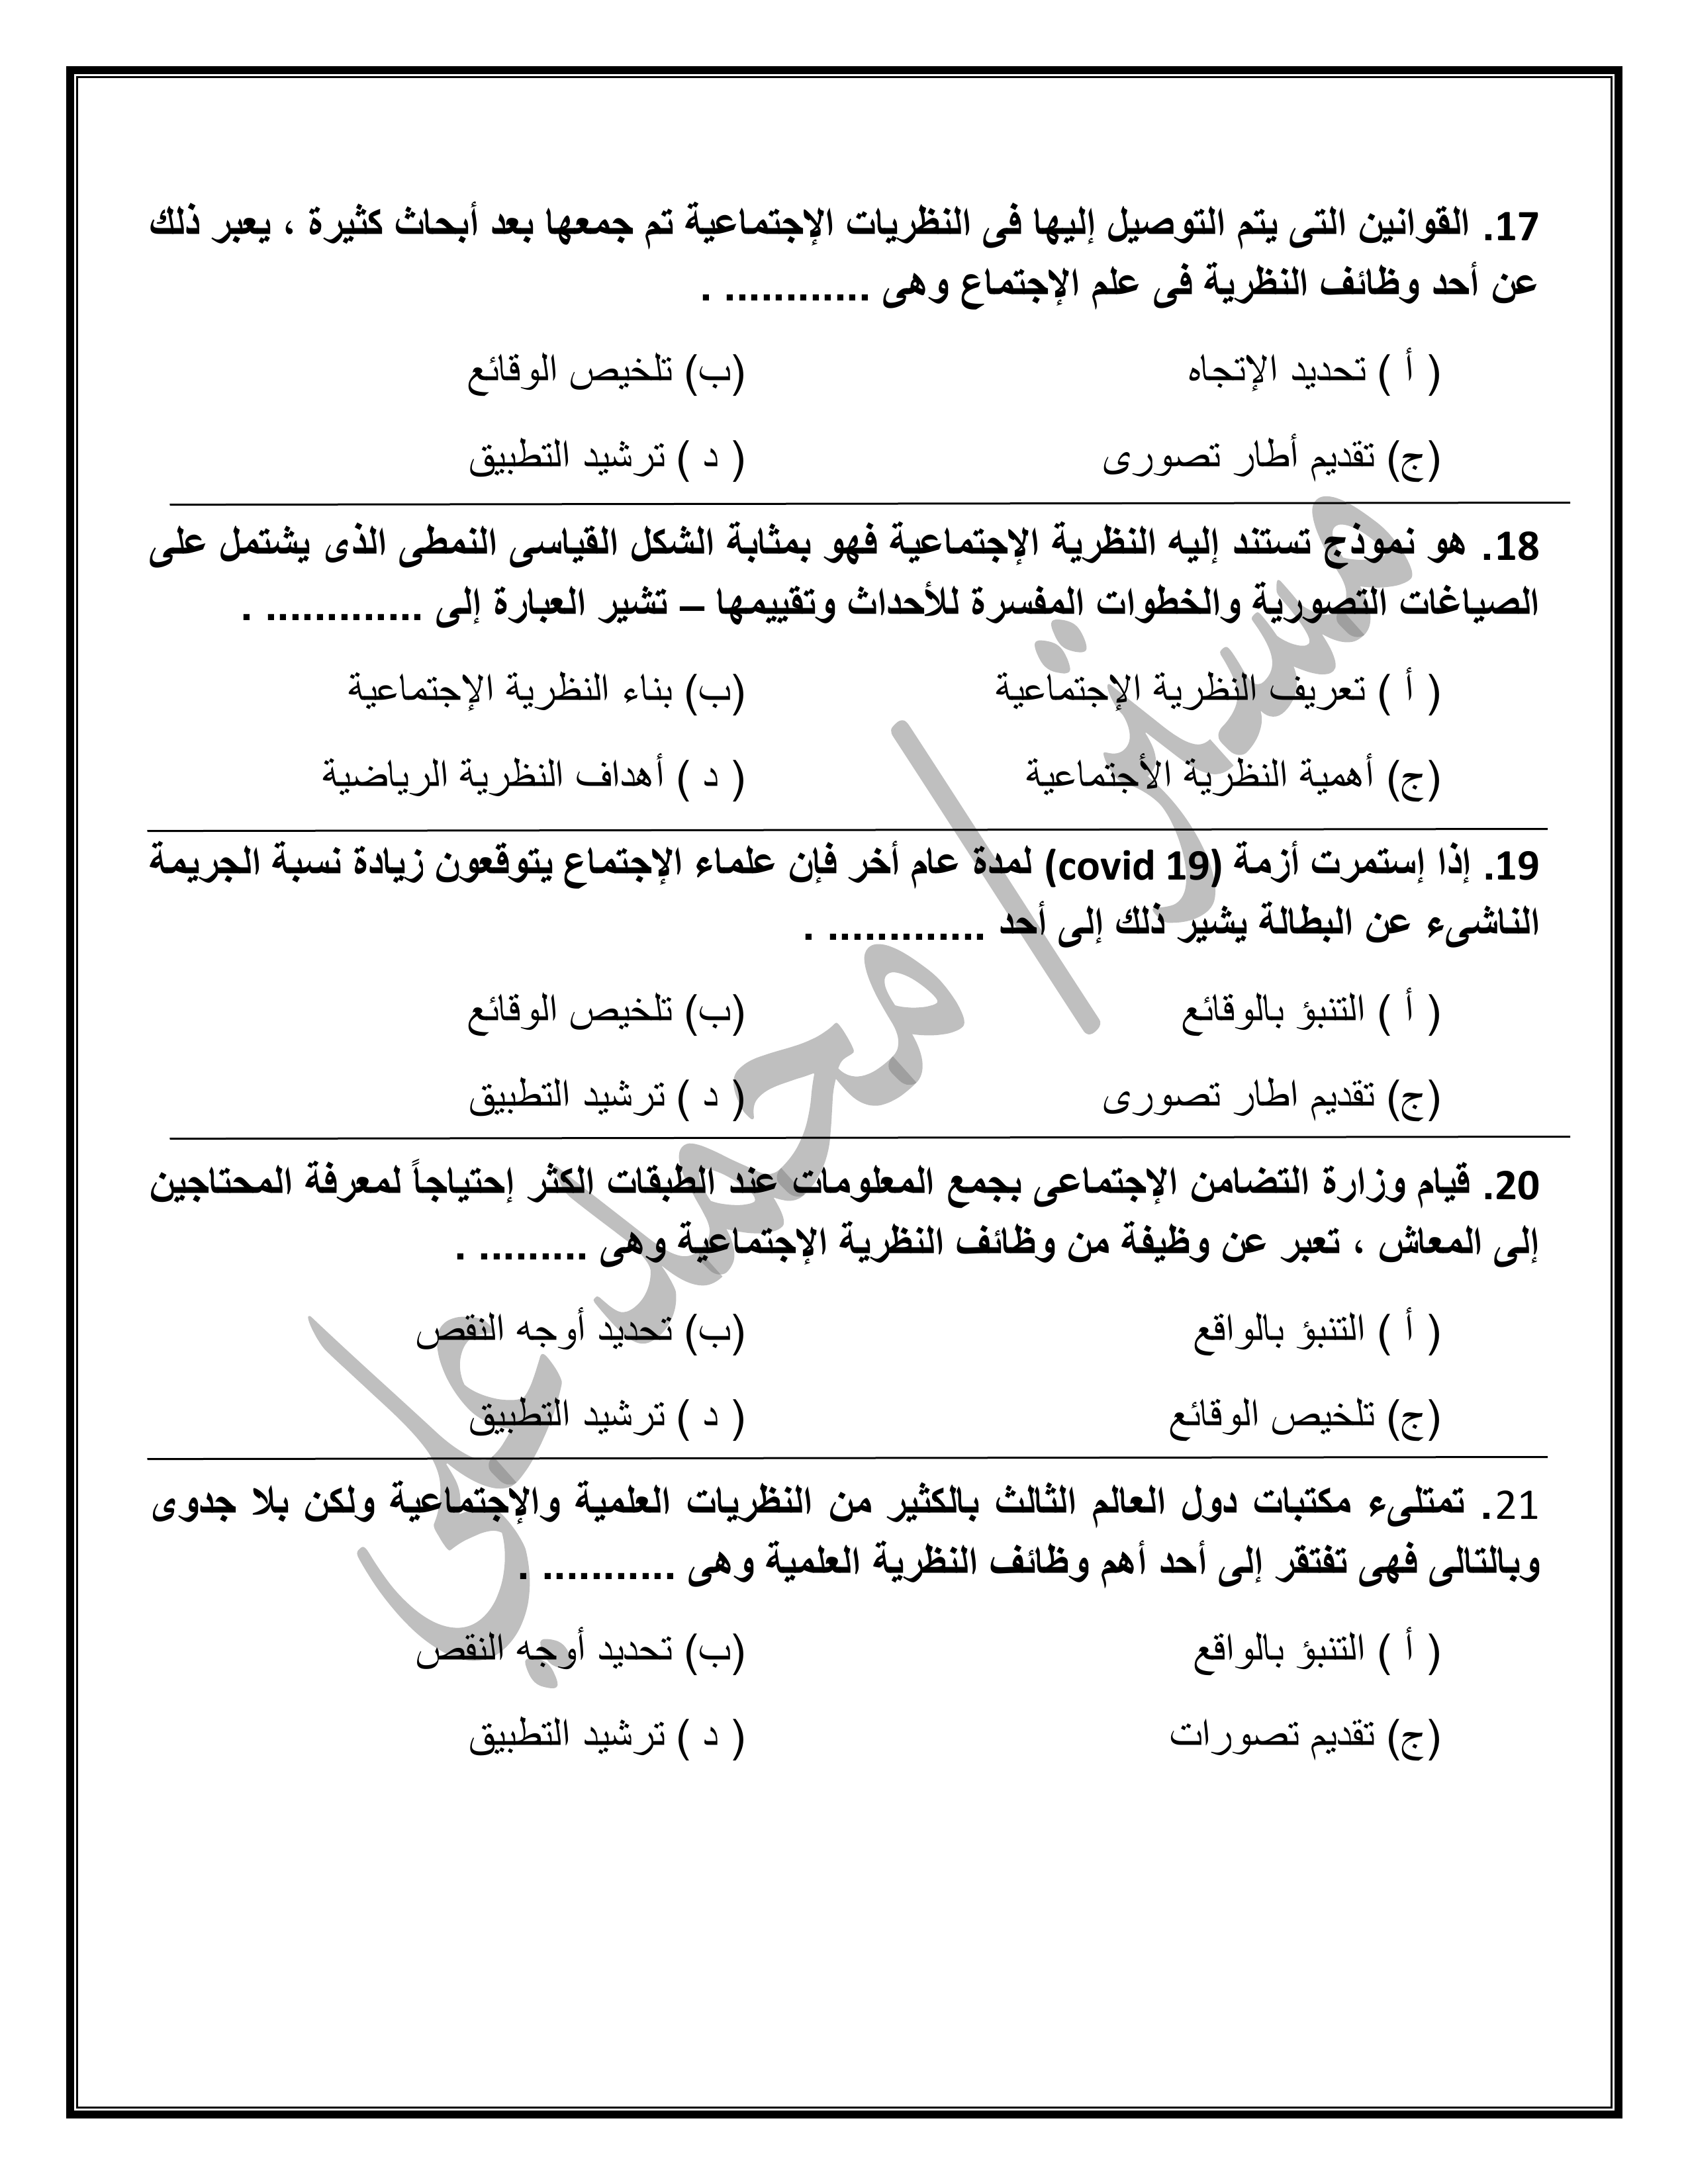 17. القوانين التى يتم التوصيل إليها فى النظريات الإجتماعية تم جمعها بعد أبحاث كثيرة ، يعبر ذلك
عن أحد وظائف النظرية فى علم الإجتماع وهى ............ .
( أ ) تحديد الإتجاه (ب) تلخيص الوقائع
(ج) تقديم أطار تصورى ( د ) ترشيد التطبيق
18. هو نموذج تستند إليه النظرية الإجتماعية فهو بمثابة الشكل القياسى النمطى الذى يشتمل على
الصياغات التصورية والخطوات المفسرة للأحداث وتقييمها – تشير العبارة إلى ............. .
( أ ) تعريف النظرية الإجتماعية (ب) بناء النظرية الإجتماعية
(ج) أهمية النظرية الأجتماعية ( د ) أهداف النظرية الرياضية
19. إذا إستمرت أزمة (covid 19) لمدة عام أخر فإن علماء الإجتماع يتوقعون زيادة نسبة الجريمة
الناشىء عن البطالة يشير ذلك إلى أحد ............. .
( أ ) التنبؤ بالوقائع (ب) تلخيص الوقائع
(ج) تقديم اطار تصورى ( د ) ترشيد التطبيق
20. قيام وزارة التضامن الإجتماعى بجمع المعلومات عند الطبقات الكثر إحتياجاً لمعرفة المحتاجين
إلى المعاش ، تعبر عن وظيفة من وظائف النظرية الإجتماعية وهى ......... .
( أ ) التنبؤ بالواقع (ب) تحديد أوجه النقص
(ج) تلخيص الوقائع ( د ) ترشيد التطبيق
21. تمتلىء مكتبات دول العالم الثالث بالكثير من النظريات العلمية والإجتماعية ولكن بلا جدوى
وبالتالى فهى تفتقر إلى أحد أهم وظائف النظرية العلمية وهى ........... .
( أ ) التنبؤ بالواقع (ب) تحديد أوجه النقص
(ج) تقديم تصورات ( د ) ترشيد التطبيق
مستر / محمد علي